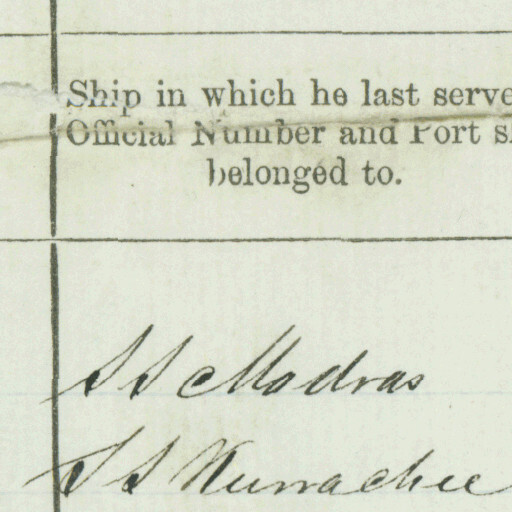 Ship in which he last serve
Official Number and Port s
belonged to.
SS Madras
SS Kurrachee